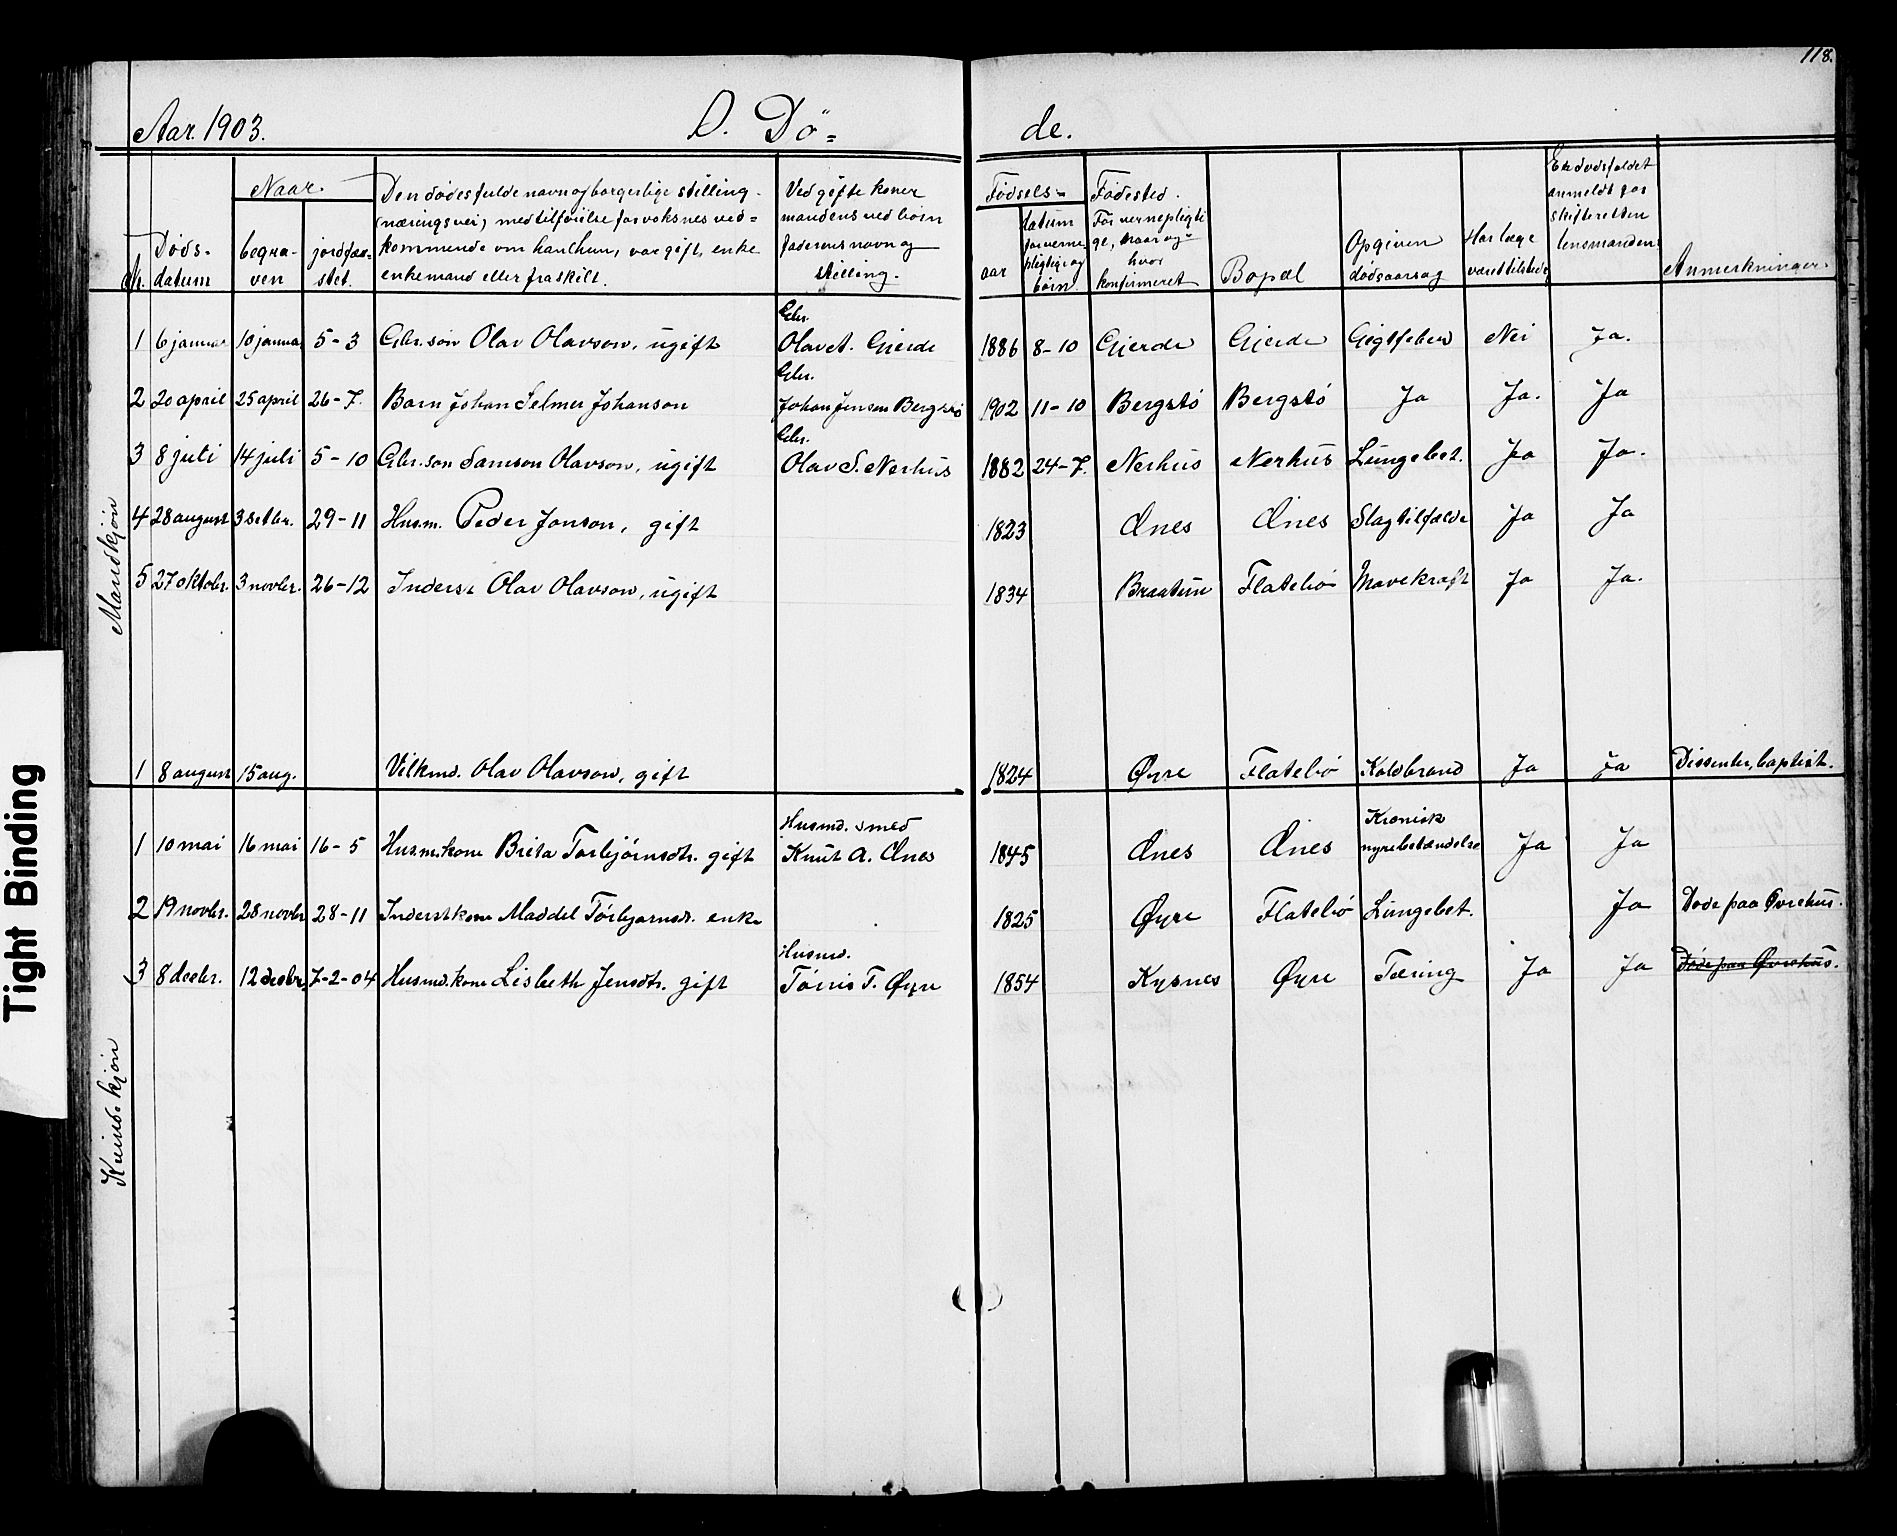 118.
Aar. 1903. D. Dö= de.
Naar.
Dödsdatum
begra-
ven
jordfæs-
stet.
Den dödes fulde navn og borgerlige stilling
(næringsvei), med tilföielse for voksnes ved=
kommende om han/hun, var gift, enke
enkemand eller fraskilt.
Ved gifte koner
mandens ved börn
faderens navn og
stilling.
Födsels=
aar
datum
for verne
pligtige og
börn
Fødested.
For vernepligti
ge, naar og
hvor
konfirmeret
Bopæl
Opgiven
dødsaarsag
Har læge
været tilstede
Er dödsfaldet
anmeldt for
skifteretten
lensmanden
Anmerkninger.
Mandkjön
1 6 januar 10 januar 5-3 Gbr. sön Olav Olavson, ugift Gbr. Olav A. Gjerde 1886 8-10 Gjerde Gjerde Gigtfeber Nei Ja.
2 20 april 25 april 26-7. Barn Johan Selmer Johanson Gbr. Johan Jensen Bergstö 1902 11-10 Bergstö Bergstö Ja Ja. Ja
3 8 juli 14 juli 5-10 Gbr. sön Samson Olavson, ugift Gbr. Olav S. Nerhus 1882 24-7. Nerhus Nerhus Lungebet. Ja Ja.
4 28 august 3 setbr. 29-11 Husm. Peder Jonson, gift 1823 Ænes Ænes Slagtilfælde Ja Ja
5 27 oktobr. 3 novbr. 26-12 Inderst Olav Olavson, ugift 1834 Braatun Flatebö Mavekræft Ja Ja.
1 8 august 15 aug. Vilkmd. Olav Olavson, gift 1824 Øyre Flatebö Koldbrand Ja Ja Dissenter, baptist.
Kvindekjön
1 10 mai 16 mai 16-5 Husm.kone Brita Torbjörnsdtr. gift Husmd. smed Knut A. Ænes 1845 Ænes Ænes Kronisk nyrebetændelse Ja Ja
2 19 novbr. 28 novbr 28-11 Inderstkone Maddel Törbjornsdr. enke 1825 Øyre Flatebö Lungebet. Ja Döde paa Øvrehus.
3 8 decbr. 12 decbr. 7-2-04 Husmd.kone Lisbeth Jensdtr. gift Husmd. Törris T. Øyre 1854 Kysnes Øyre Tæring Ja Ja Döde paa Øvrehus.
Tight Binding